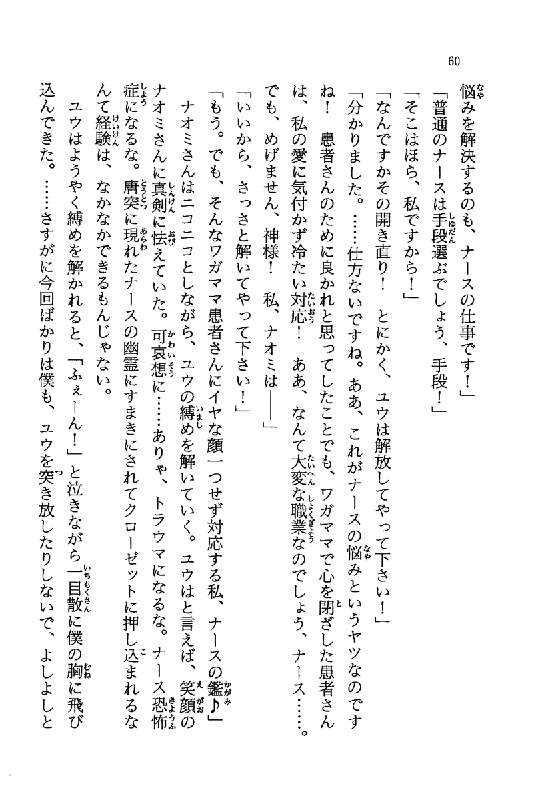 60
悩みを解決するのも、ナースの仕事です！」
「普通のナースは手段選ぶでしょう、手段！」
「そこはほら、私ですから！」
「なんですかその開き直り！　とにかく、ユウは解放してやって下さい！」
「分かりました。……仕方ないですね。ああ、これがナースの悩みというヤツなのです
ね！　患者さんのために良かれと思ってしたことでも、ワガママで心を閉ざした患者さん
は、私の愛に気付かず冷たい対応！　ああ、なんて大変な職業なのでしょう、ナース……。
でも、めげません、神様！　私、ナオミは――」
「いいから、さっさと解いてやって下さい！」
「もう。でも、そんなワガママ患者さんにイヤな顔一つせず対応する私、ナースの鑑♪」
　ナオミさんはニコニコとしながら、ユウの縛めを解いていく。ユウはと言えば、笑顔の
ナオミさんに真剣に怯えていた。可哀想に……ありゃ、トラウマになるな。ナース恐怖
症になるな。唐突に現れたナースの幽霊にすまきにされてクローゼットに押し込まれるな
んて経験は、なかなかできるもんじゃない。
　ユウはようやく縛めを解かれると、「ふぇーん！」と泣きながら一目散に僕の胸に飛び
込んできた。……さすがに今回ばかりは僕も、ユウを突き放したりしないで、よしよしと